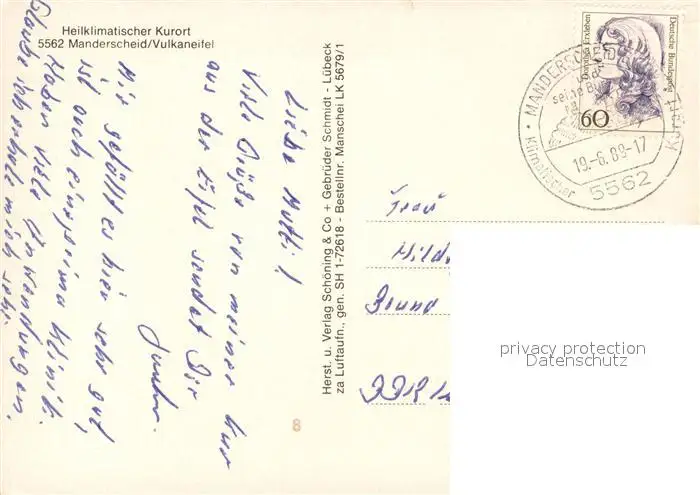 Heilklimatischer Kurort
5562 Manderscheid/Vulkaneifel
Liebe Mutti!
Viele Grüße von meiner Kur
aus der Eifel sendet Dir
Mir gefällt es hier sehr gut,
ist auch eine prima Klinik.
Haben viele Anwendungen.
Glaube ich erhole mich sehr.
Herst. u. Verlag Schöning & Co + Gebrüder Schmidt - Lübeck
za Luftaufn., gen. SH 1-72618 - Bestellnr. Manschei LK 5679/1
8
Deutsche Bundespost
60
MANDERSCHEID
und
seine Bu
Klimatischer Kurort
19.-6.89-17
5562
Frau
Hild
DDR
privacy protection
Datenschutz